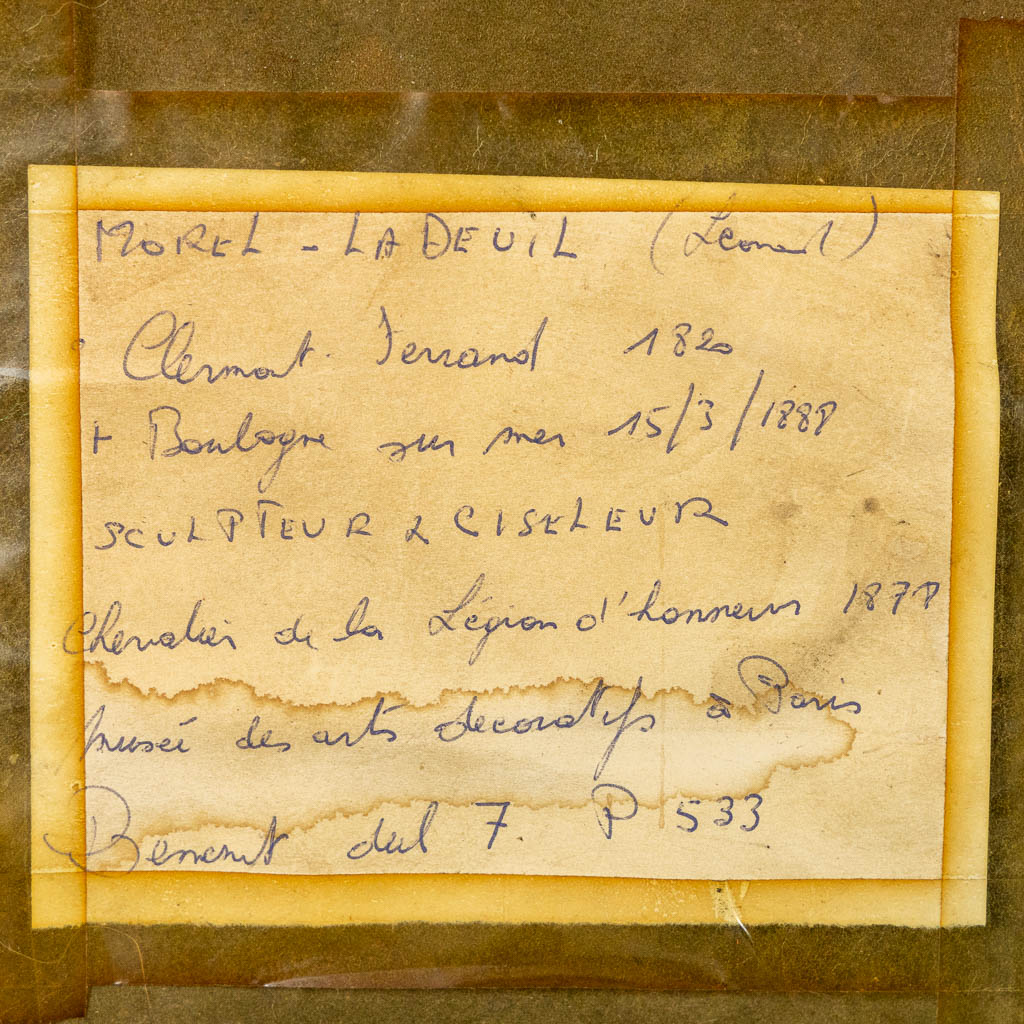 MOREL - LADEUIL (Léonard)
Clermont. Ferrand 1820
+ Boulogne sur mer 15/3/1888
SCULPTEUR & CISELEUR
Chevalier de la Légion d'honneur 1878
Musée des arts decoratifs à Paris
Benezit 7. P 533